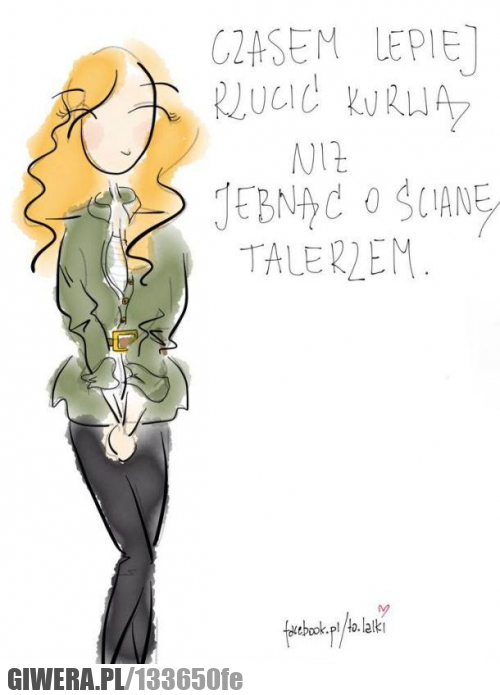 CZASEM LEPIEJ
RZUCIĆ KURWĄ
NIŻ
JEBNĄĆ O ŚCIANĘ
TALERZEM.
facebook.pl/to.lalki
GIWERA.PL/133650fe